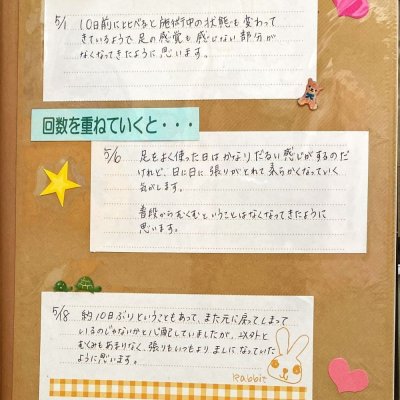 5/1 10日前にくらべると施術中の状態も変わって
きているようで足の感覚も感じない部分が
なくなってきたように思います。
回数を重ねていくと・・・
5/6 足をよく使った日はかなりだるい感じがするのだ
けれど、日に日に張りがとれて柔らかくなっていく
気がします。
普段からむくむということはなくなってきたように
思います。
5/18 約10日ぶりということもあって、また元に戻ってしまって
いるのじゃないかと心配していましたが、以外と
むくみもあまりなく、張りもいつもより ましになっていた
ように思います。
Rabbit